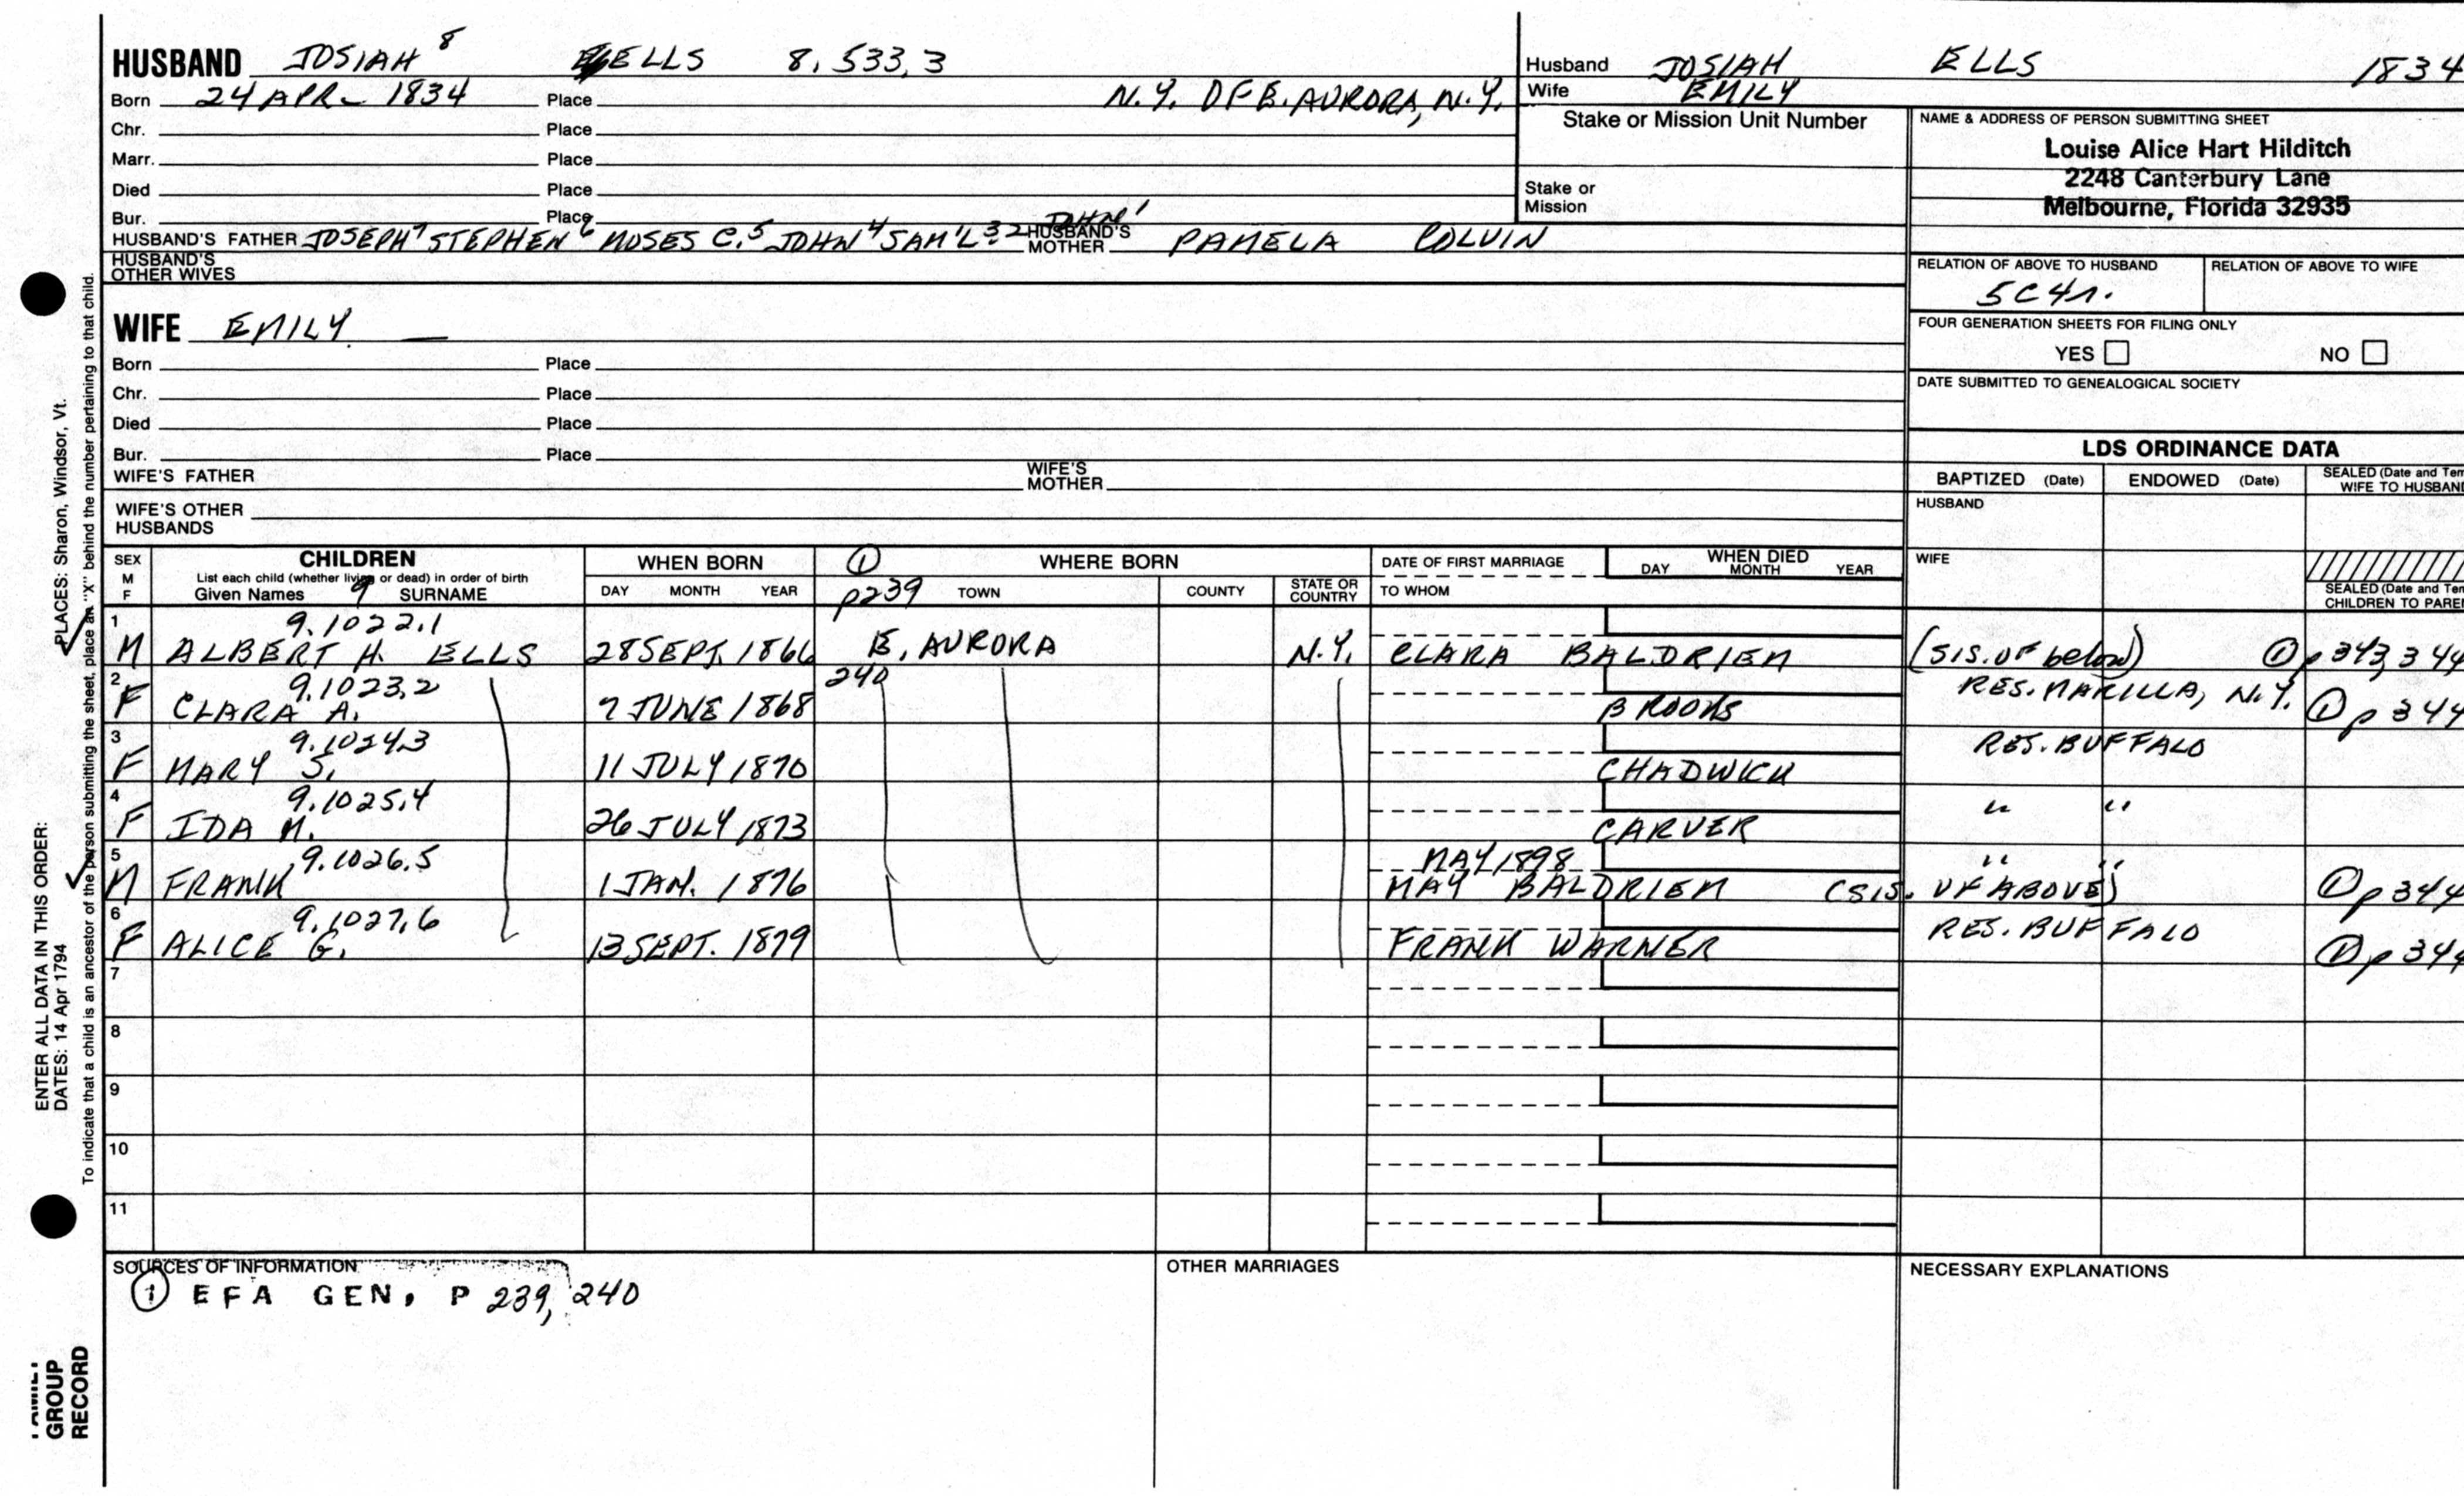 HUSBAND JOSIAH 8 ELLS 8.533.3
Born 24 APR 1834 Place N.Y. OF E. AURORA, N.Y.
Chr. Place
Marr. Place
Died Place
Bur. Place
HUSBAND'S FATHER JOSEPH 7 STEPHEN 6 MOSES C. 5 JOHN 4 SAM'L 3 2 JOHN 1 HUSBAND'S MOTHER PAMELA COLVIN
HUSBAND'S OTHER WIVES
Husband JOSIAH ELLS 1834
Wife EMILY
Stake or Mission Unit Number
Stake or Mission
NAME & ADDRESS OF PERSON SUBMITTING SHEET
Louise Alice Hart Hilditch
2248 Canterbury Lane
Melbourne, Florida 32935
RELATION OF ABOVE TO HUSBAND RELATION OF ABOVE TO WIFE
5C4r.
FOUR GENERATION SHEETS FOR FILING ONLY
YES NO
DATE SUBMITTED TO GENEALOGICAL SOCIETY
WIFE EMILY —
Born Place
Chr. Place
Died Place
Bur. Place
WIFE'S FATHER WIFE'S MOTHER
WIFE'S OTHER HUSBANDS
LDS ORDINANCE DATA
BAPTIZED (Date) ENDOWED (Date) SEALED (Date and Tem
WIFE TO HUSBAND
HUSBAND
WIFE
SEALED (Date and Tem
CHILDREN TO PAREN
SEX M F CHILDREN WHEN BORN ① WHERE BORN DATE OF FIRST MARRIAGE WHEN DIED
List each child (whether living or dead) in order of birth
Given Names 9 SURNAME DAY MONTH YEAR p239 TOWN COUNTY STATE OR COUNTRY TO WHOM DAY MONTH YEAR
1 9.1022.1
M ALBERT H. ELLS 28 SEPT. 1866 E. AURORA N.Y. CLARA BALDRIEN (SIS. OF below) ① p 343, 344
2 9.1023.2 240 RES. MARILLA, N.Y.
F CLARA A. 7 JUNE 1868 BROOKS ① p 344
3 9.1024.3 RES. BUFFALO
F MARY S. 11 JULY 1870 CHADWICK
4 9.1025.4 " "
F IDA M. 26 JULY 1873 CARVER
5 9.1026.5 MAY 1898 " "
M FRANK 1 JAN. 1876 MAY BALDRIEN (SIS. OF ABOVE) ① p 344
6 9.1027.6 RES. BUFFALO
F ALICE G. 13 SEPT. 1879 FRANK WARNER ① p 344
7
8
9
10
11
SOURCES OF INFORMATION OTHER MARRIAGES NECESSARY EXPLANATIONS
① EFA GEN. P 239, 240
ENTER ALL DATA IN THIS ORDER:
DATES: 14 Apr 1794 PLACES: Sharon, Windsor, Vt.
To indicate that a child is an ancestor of the person submitting the sheet, place an "X" behind the number pertaining to that child.
GROUP
RECORD